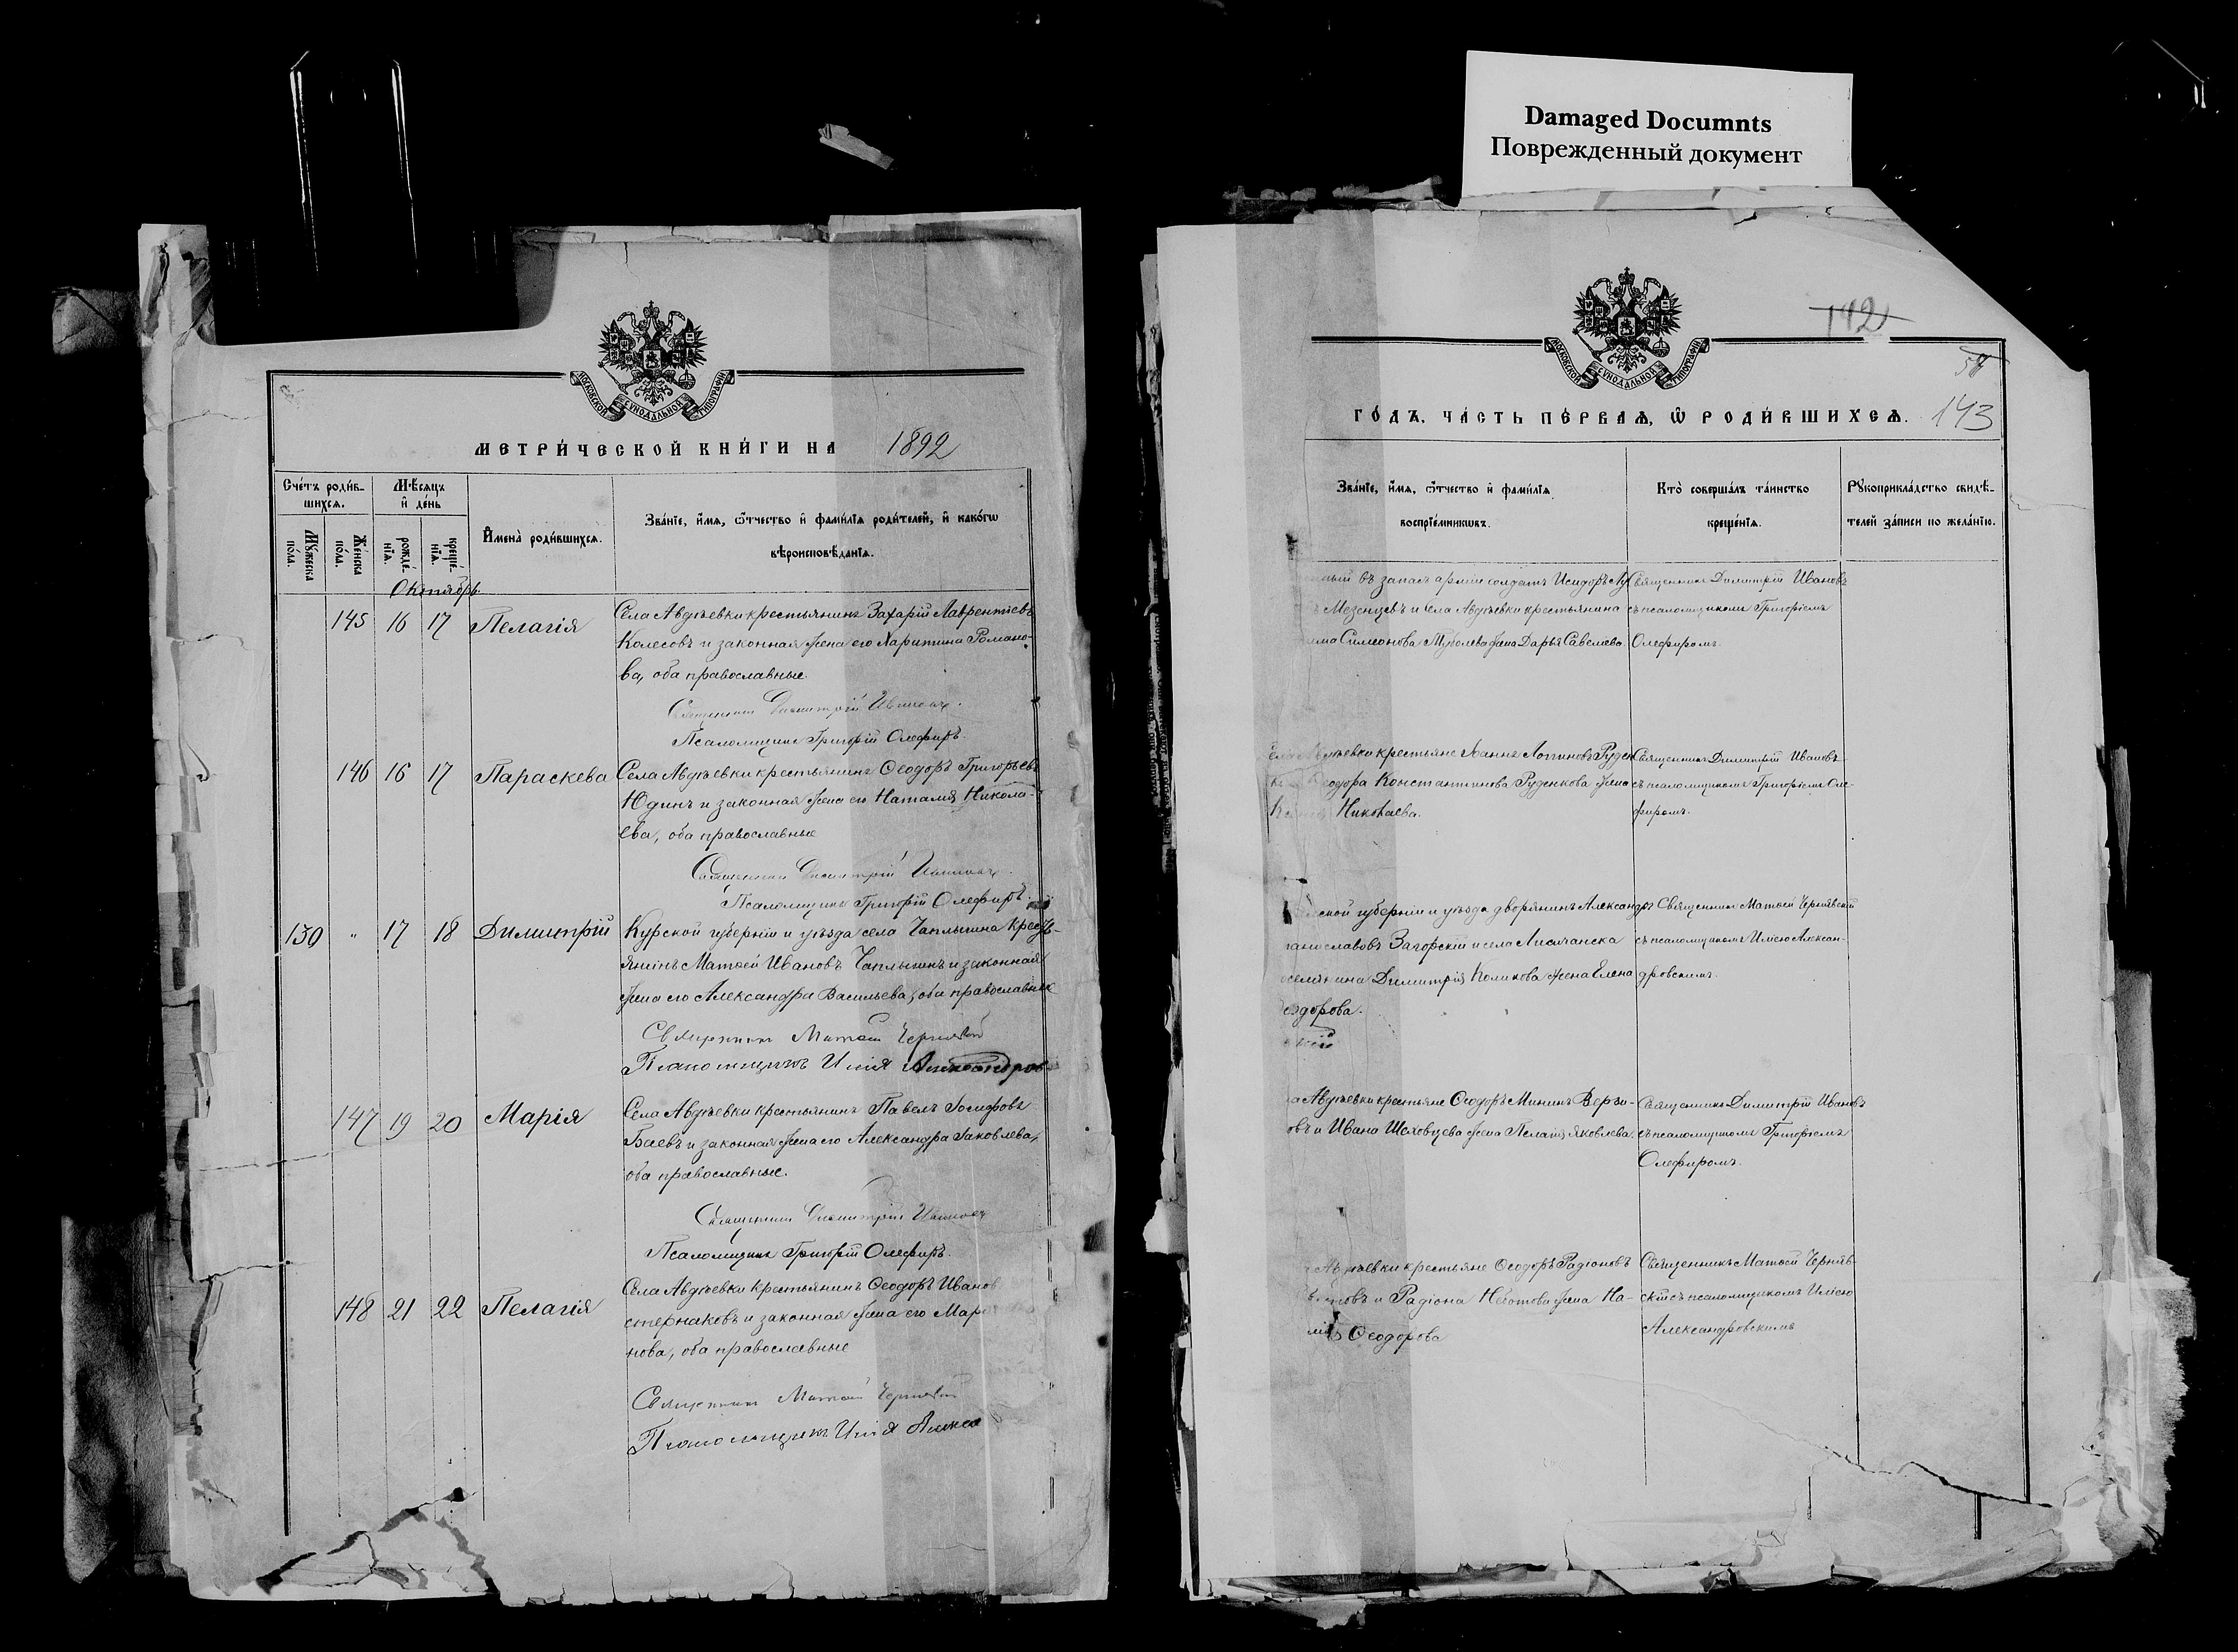 Damaged Documnts
Поврежденный документ
МОСКОВСКОЙ СѴНОДАЛЬНОЙ ТИПОГРАФІИ
МЕТРИ́ЧЕСКОЙ КНИ́ГИ НА 1892
Сче́тъ роди́в-
шихся.
Мѣ́сяцъ
и҆ де́нь
Мꙋ́жеска
по́ла.
Же́нска
по́ла.
рожде́-
нїѧ.
креще́-
нїѧ.
И҆мена̀ роди́вшихсѧ.
Зва́нїе, и҆́мѧ, ѻ҆́тчество и҆ фами́лїѧ роди́телей, и҆ како́гѡ
вѣроисповѣ́данїѧ.
Октябрь.
145 16 17 Пелагія
Села Авдѣевки крестьянинъ Захарій Лаврентіевъ
Колесовъ и законная жена его Харитина Романо-
ва, оба православные.
Священникъ Димитрій Ивановъ.
Псаломщикъ Григорій Олефиръ.
146 16 17 Параскева
Села Авдѣевки крестьянинъ Ѳеодоръ Григорьевъ
Юдинъ и законная жена его Наталія Никола-
ева, оба православные
Священникъ Димитрій Ивановъ.
Псаломщикъ Григорій Олефиръ.
150 " 17 18 Димитрій
Курской губерніи и уѣзда села Чаплыгина Кресть-
янинъ Матѳей Ивановъ Чаплыгинъ и законная
жена его Александра Васильева, оба православные
Священникъ Матѳей Чернявскій
Псаломщикъ Илія Александров
147 19 20 Марія
Села Авдѣевки крестьянинъ Павелъ Іосифовъ
Баевъ и законная жена его Александра Іаковлева,
оба православные.
Священникъ Димитрій Ивановъ
Псаломщикъ Григорій Олефиръ.
148 21 22 Пелагія
Села Авдѣевки крестьянинъ Ѳеодоръ Иванов
стернаковъ и законная жена его Мар
нова, оба православные
Священникъ Матѳей Чернявскій
Псаломщикъ Илія Алекса
142
143
МОСКОВСКОЙ СѴНОДАЛЬНОЙ ТИПОГРАФІИ
ГО́ДЪ, ЧА́СТЬ ПЕ́РВАѦ, Ѡ҆ РОДИ́ВШИХСѦ.
Зва́нїе, и҆́мѧ, ѻ҆́тчество и҆ фами́лїѧ
воспрїе́мникѡвъ.
Кто̀ соверша́лъ та́инство
креще́нїѧ.
Рꙋкоприкла́дство свидѣ́-
телей за́писи по жела́нїю.
ный въ запасъ арміи солдатъ Исидоръ
Мезенцевъ и села Авдѣевки крестьянина
Симеонова жена Дарья Савелиева.
Священникъ Димитрій Ивановъ
съ псаломщикомъ Григоріемъ
Олефиромъ.
крестьяне Іоаннъ Логгиновъ Руден
Ѳеодора Константинова Руденкова жена
Николаева.
Священникъ Димитрій Ивановъ
съ псаломщикомъ Григоріемъ Оле-
фиромъ.
ской губерніи и уѣзда дворянинъ Александръ
таниславовъ Загорскій и села Лисичанска
оселянина Димитрія Коликова жена Елена
еодорова.
Священникъ Матѳей Чернявскій
съ псаломщикомъ Иліею Алексан-
дровскимъ.
Авдѣевки крестьяне Ѳеодоръ Мининъ Верзи-
овъ и Ивана Шеховцева жена Пелагія Яковлева.
Священникъ Димитрій Ивановъ
съ псаломщикомъ Григоріемъ
Олефиромъ.
Авдѣевки крестьяне Ѳеодоръ Радіоновъ
и Радіона жена На-
лія Ѳеодорова
Священникъ Матѳей Черняв-
скій съ псаломщикомъ Иліею
Александровскимъ